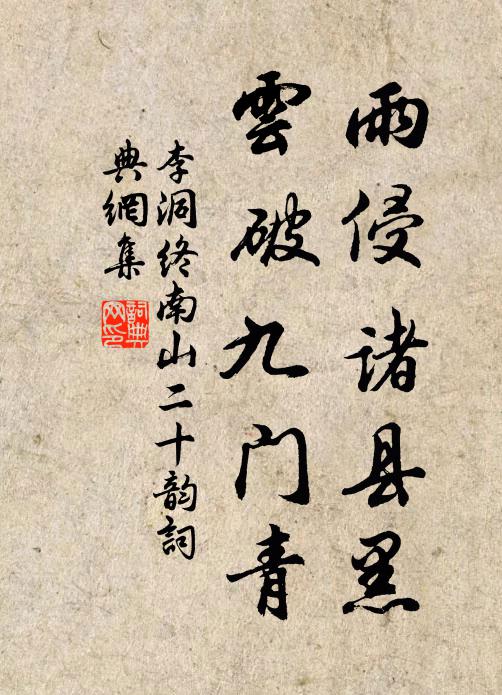 雨侵诸县黑
雲破九门青
李洞终南山二十韵詞
典網集
詞典网印